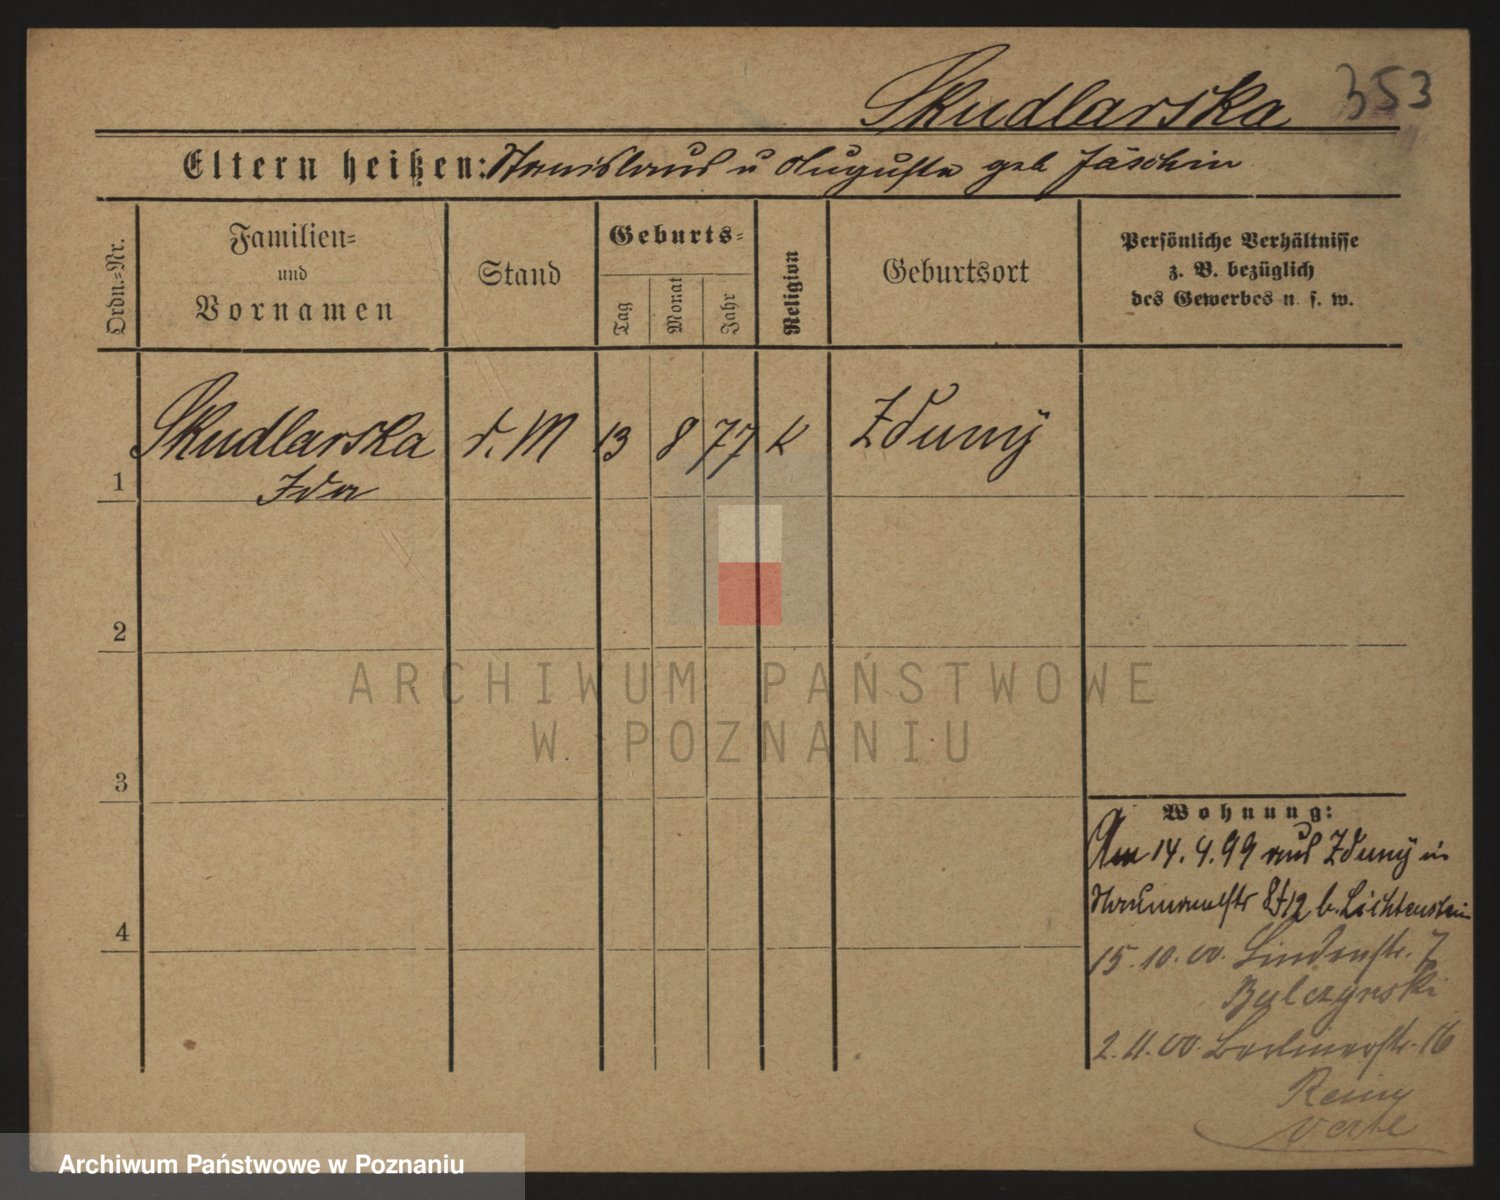 Skudlarska 353
Eltern heißen: Stanislaus u Auguste geb Jäschin
Ordn.-Nr.
Familien-
und
Vornamen
Stand
Geburts-
Tag
Monat
Jahr
Religion
Geburtsort
Persönliche Verhältnisse
z. B. bezüglich
des Gewerbes u. s. w.
1 Skudlarska d. M 13 8 77 K Zduny
Ida
2
3
4
Wohnung:
Am 14.4.99 aus Zduny in
Naumannstr 12 b. Lichtenstein
15.10.00. Lindenstr. 7
Balczynski
2.11.00. Berlinerstr. 16
Remy
verte
ARCHIWUM PAŃSTWOWE
W POZNANIU
Archiwum Państwowe w Poznaniu